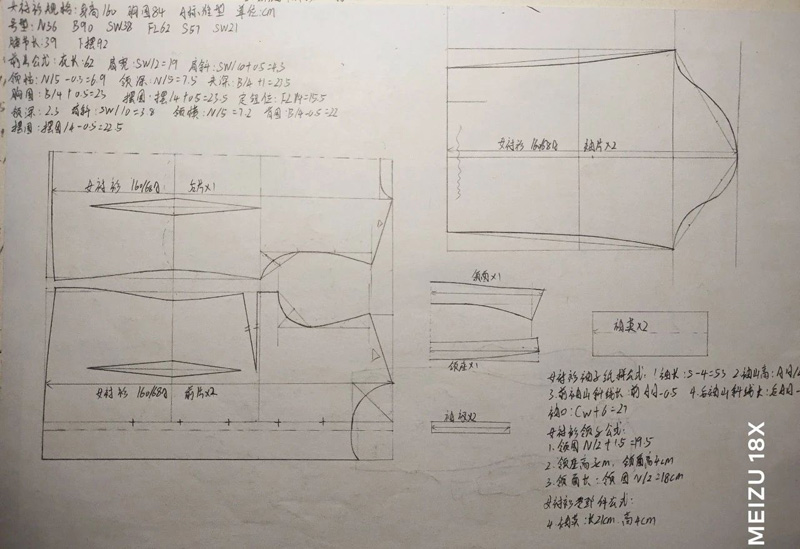 女衬衫规格:身高160 胸围84 A标准型 单位:cm
号型: N36 B90 SW38 FL62 S57 SW21
腰节长:39 下摆92
前片公式:衣长:62 肩宽:SW/2=19 肩斜:SW/10+0.5=4.3
领横:N/5-0.3=6.9 领深:N/5=7.5 夹深:B/4+1=23.5
胸围:B/4+0.5=23 摆围:摆/4+0.5=23.5 定纽位:FL/4=15.5
领深:2.3 肩斜:SW/10=3.8 领横:N/5=7.2 胸围:B/4-0.5=22
摆围:摆围/4-0.5=22.5
女衬衫 160/68A 后片×1
女衬衫 160/68A 前片×2
女衬衫 160/68A 袖片×2
领面×1
领座×1
袖英×2
袖衩×2
女衬衫袖子纸样公式:1.袖长:S-4=53 2.袖山高:
3.前袖山斜线长:前AH-0.5 4.后袖山斜线长:后AH-
袖口:CW+6=27
女衬衫领子公式:
1.领围N/2+1.5=19.5
2.领座高3cm, 领面高4cm
3.领面长:领围N/2=18cm
女衬衫零部件公式:
4.袖英:长21cm.高4cm
MEIZU 18X